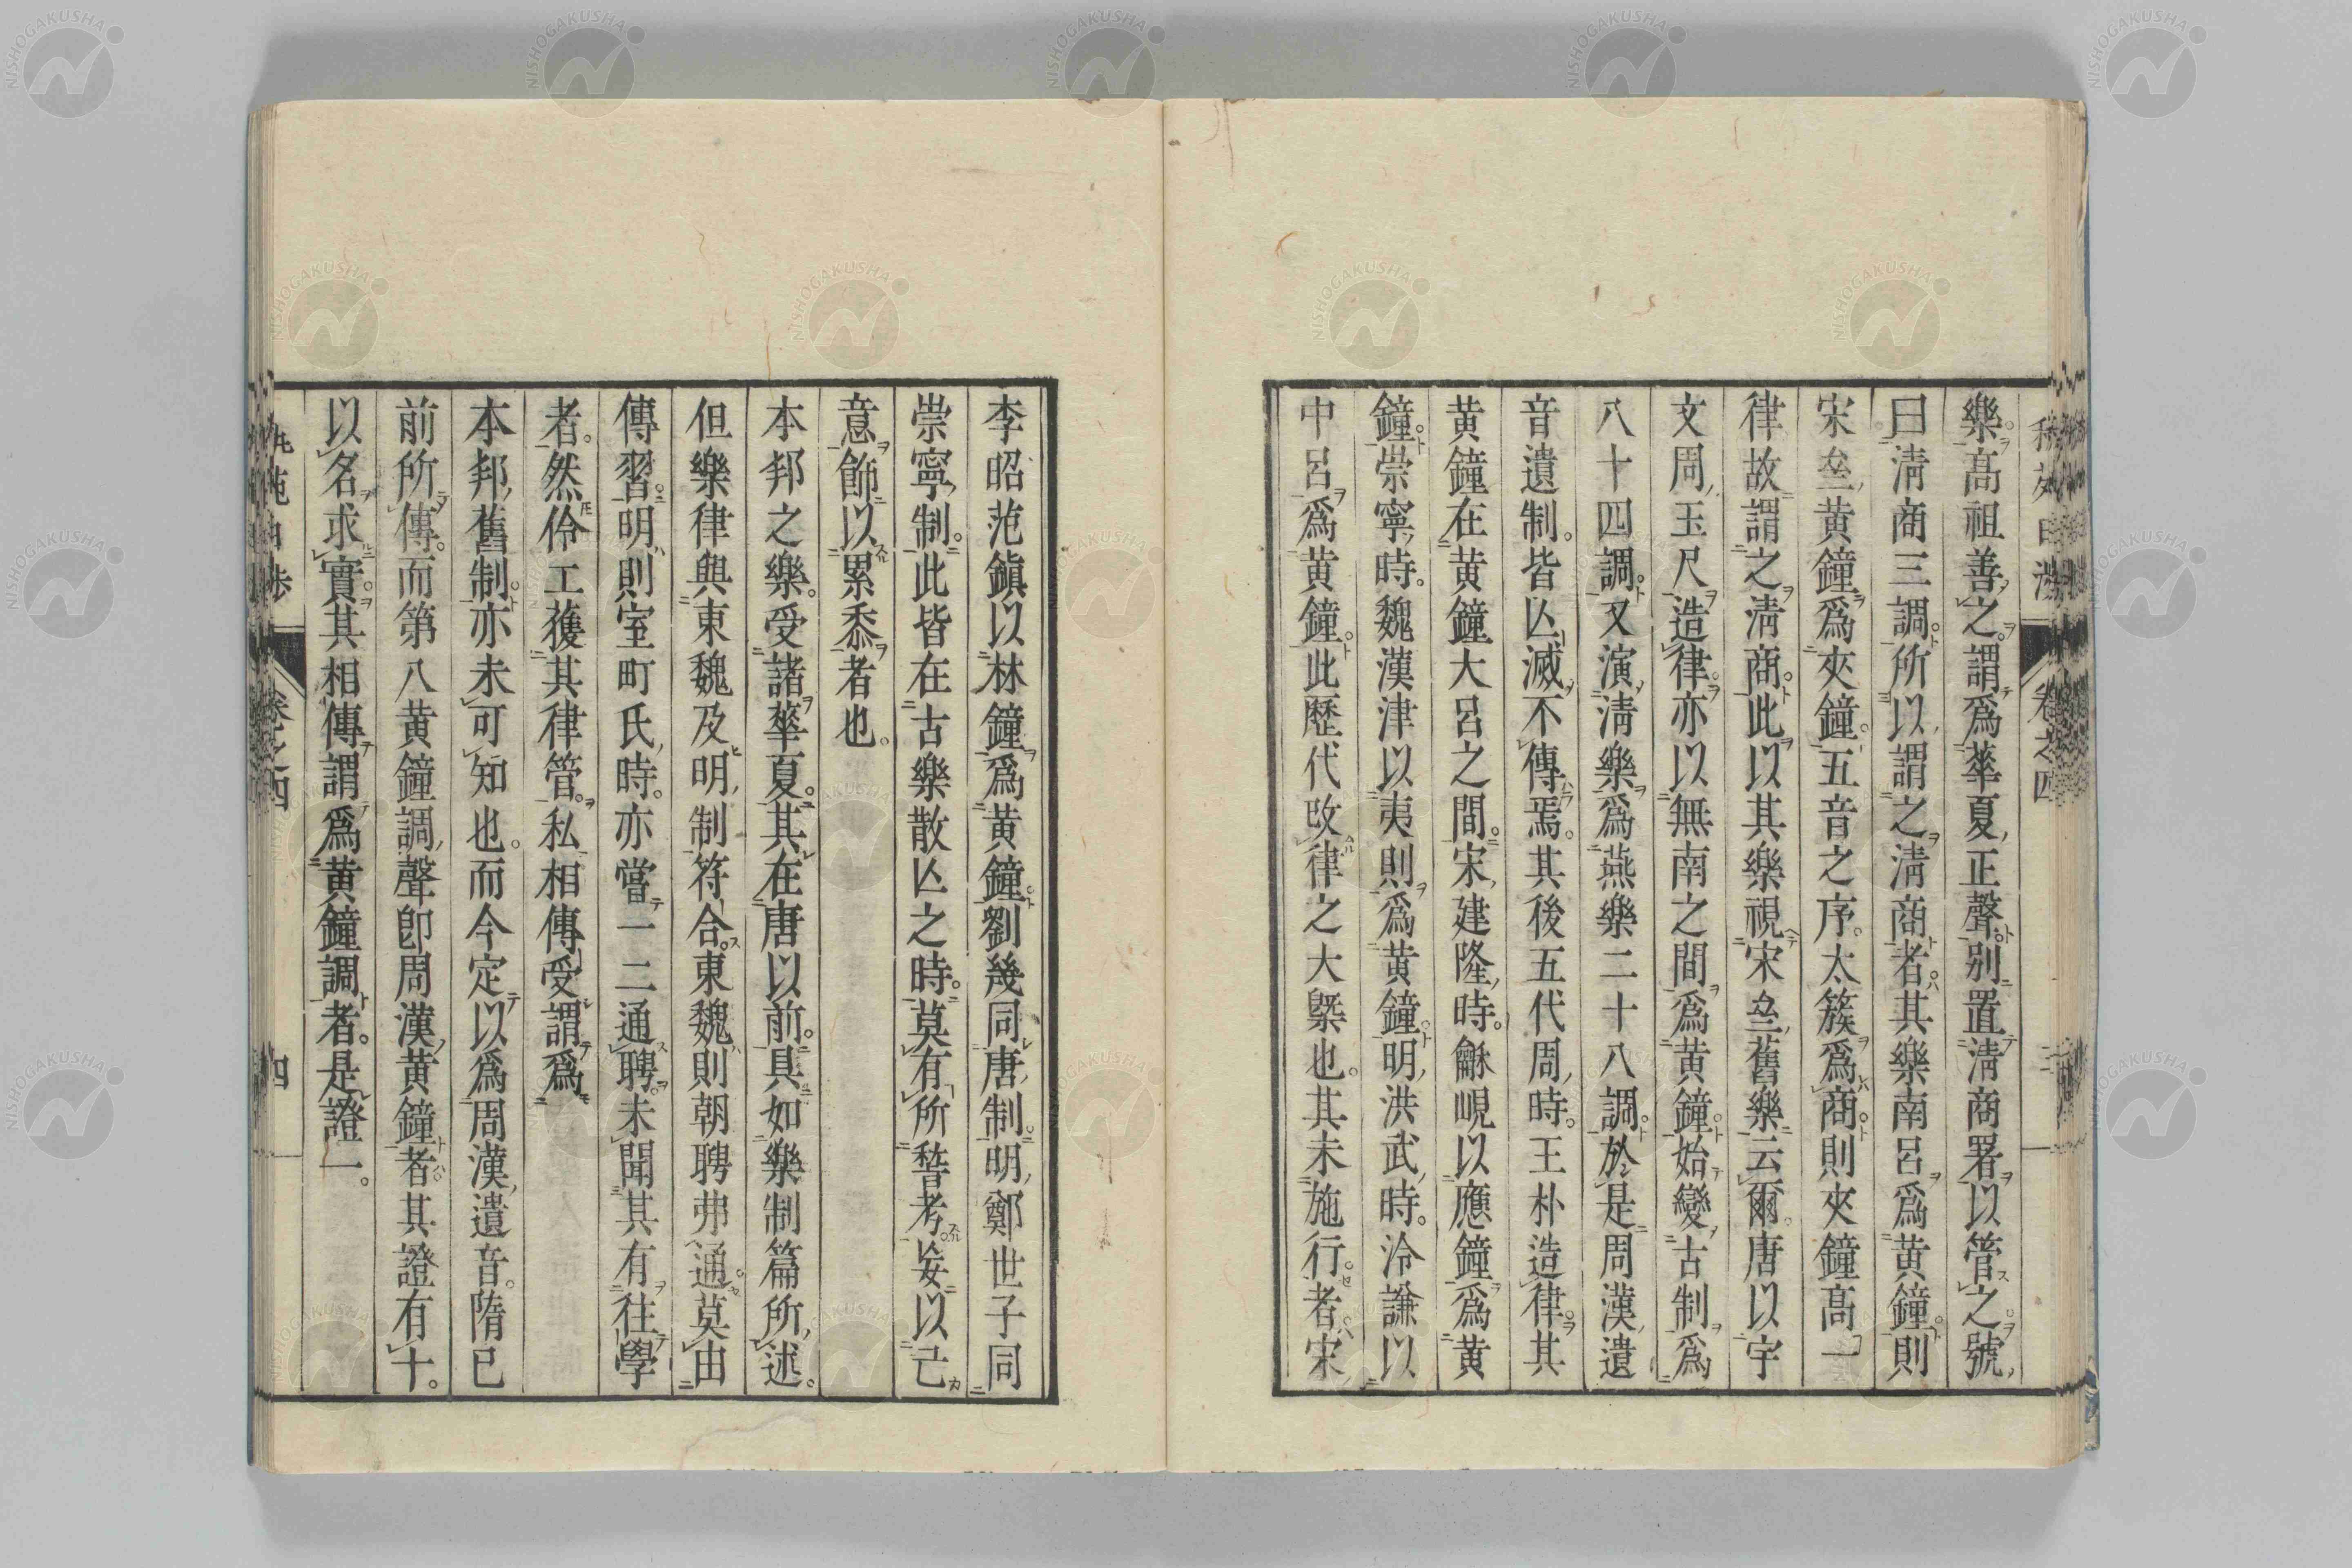 樂。高祖善之。謂爲華夏正聲。別置淸商署以管之。號
曰淸商三調。所以謂之淸商者。其樂南呂爲黃鐘。則
宋亝黃鐘爲夾鐘。五音之序。太簇爲商。則夾鐘高一
律故謂之淸商。此以其樂視宋亝舊樂云爾。唐以宇
文周玉尺造律。亦以無南之間爲黃鐘。始變古制爲
八十四調。又演淸樂爲燕樂二十八調。於是周漢遺
音遺制。皆亾滅不傳焉。其後五代周時。王朴造律。其
黃鐘在黃鐘大呂之間。宋建隆時。龢峴以應鐘爲黃
鐘。崇寧時。魏漢津以夷則爲黃鐘。明洪武時。泠謙以
中呂爲黃鐘。此歷代改律之大槩也。其未施行者。宋
李昭范鎭以林鐘爲黃鐘。劉幾同唐制。明鄭世子同
崇寧制。此皆在古樂散亾之時。莫有所稽考。妄以己
意飾以累黍者也。
本邦之樂。受諸華夏。其在唐以前。具如樂制篇所述。
但樂律與東魏及明制符合。東魏則朝聘弗通。莫由
傳習。明則室町氏時。亦嘗一二通聘。未聞其有往學
者。然伶工獲其律管。私相傳受謂爲
本邦舊制。亦未可知也。而今定以爲周漢遺音。隋已
前所傳。而第八黃鐘調聲卽周漢黃鐘者其證有十。
以名求實。其相傳謂爲黃鐘調者。是證一。
卷之四
四
卷之四